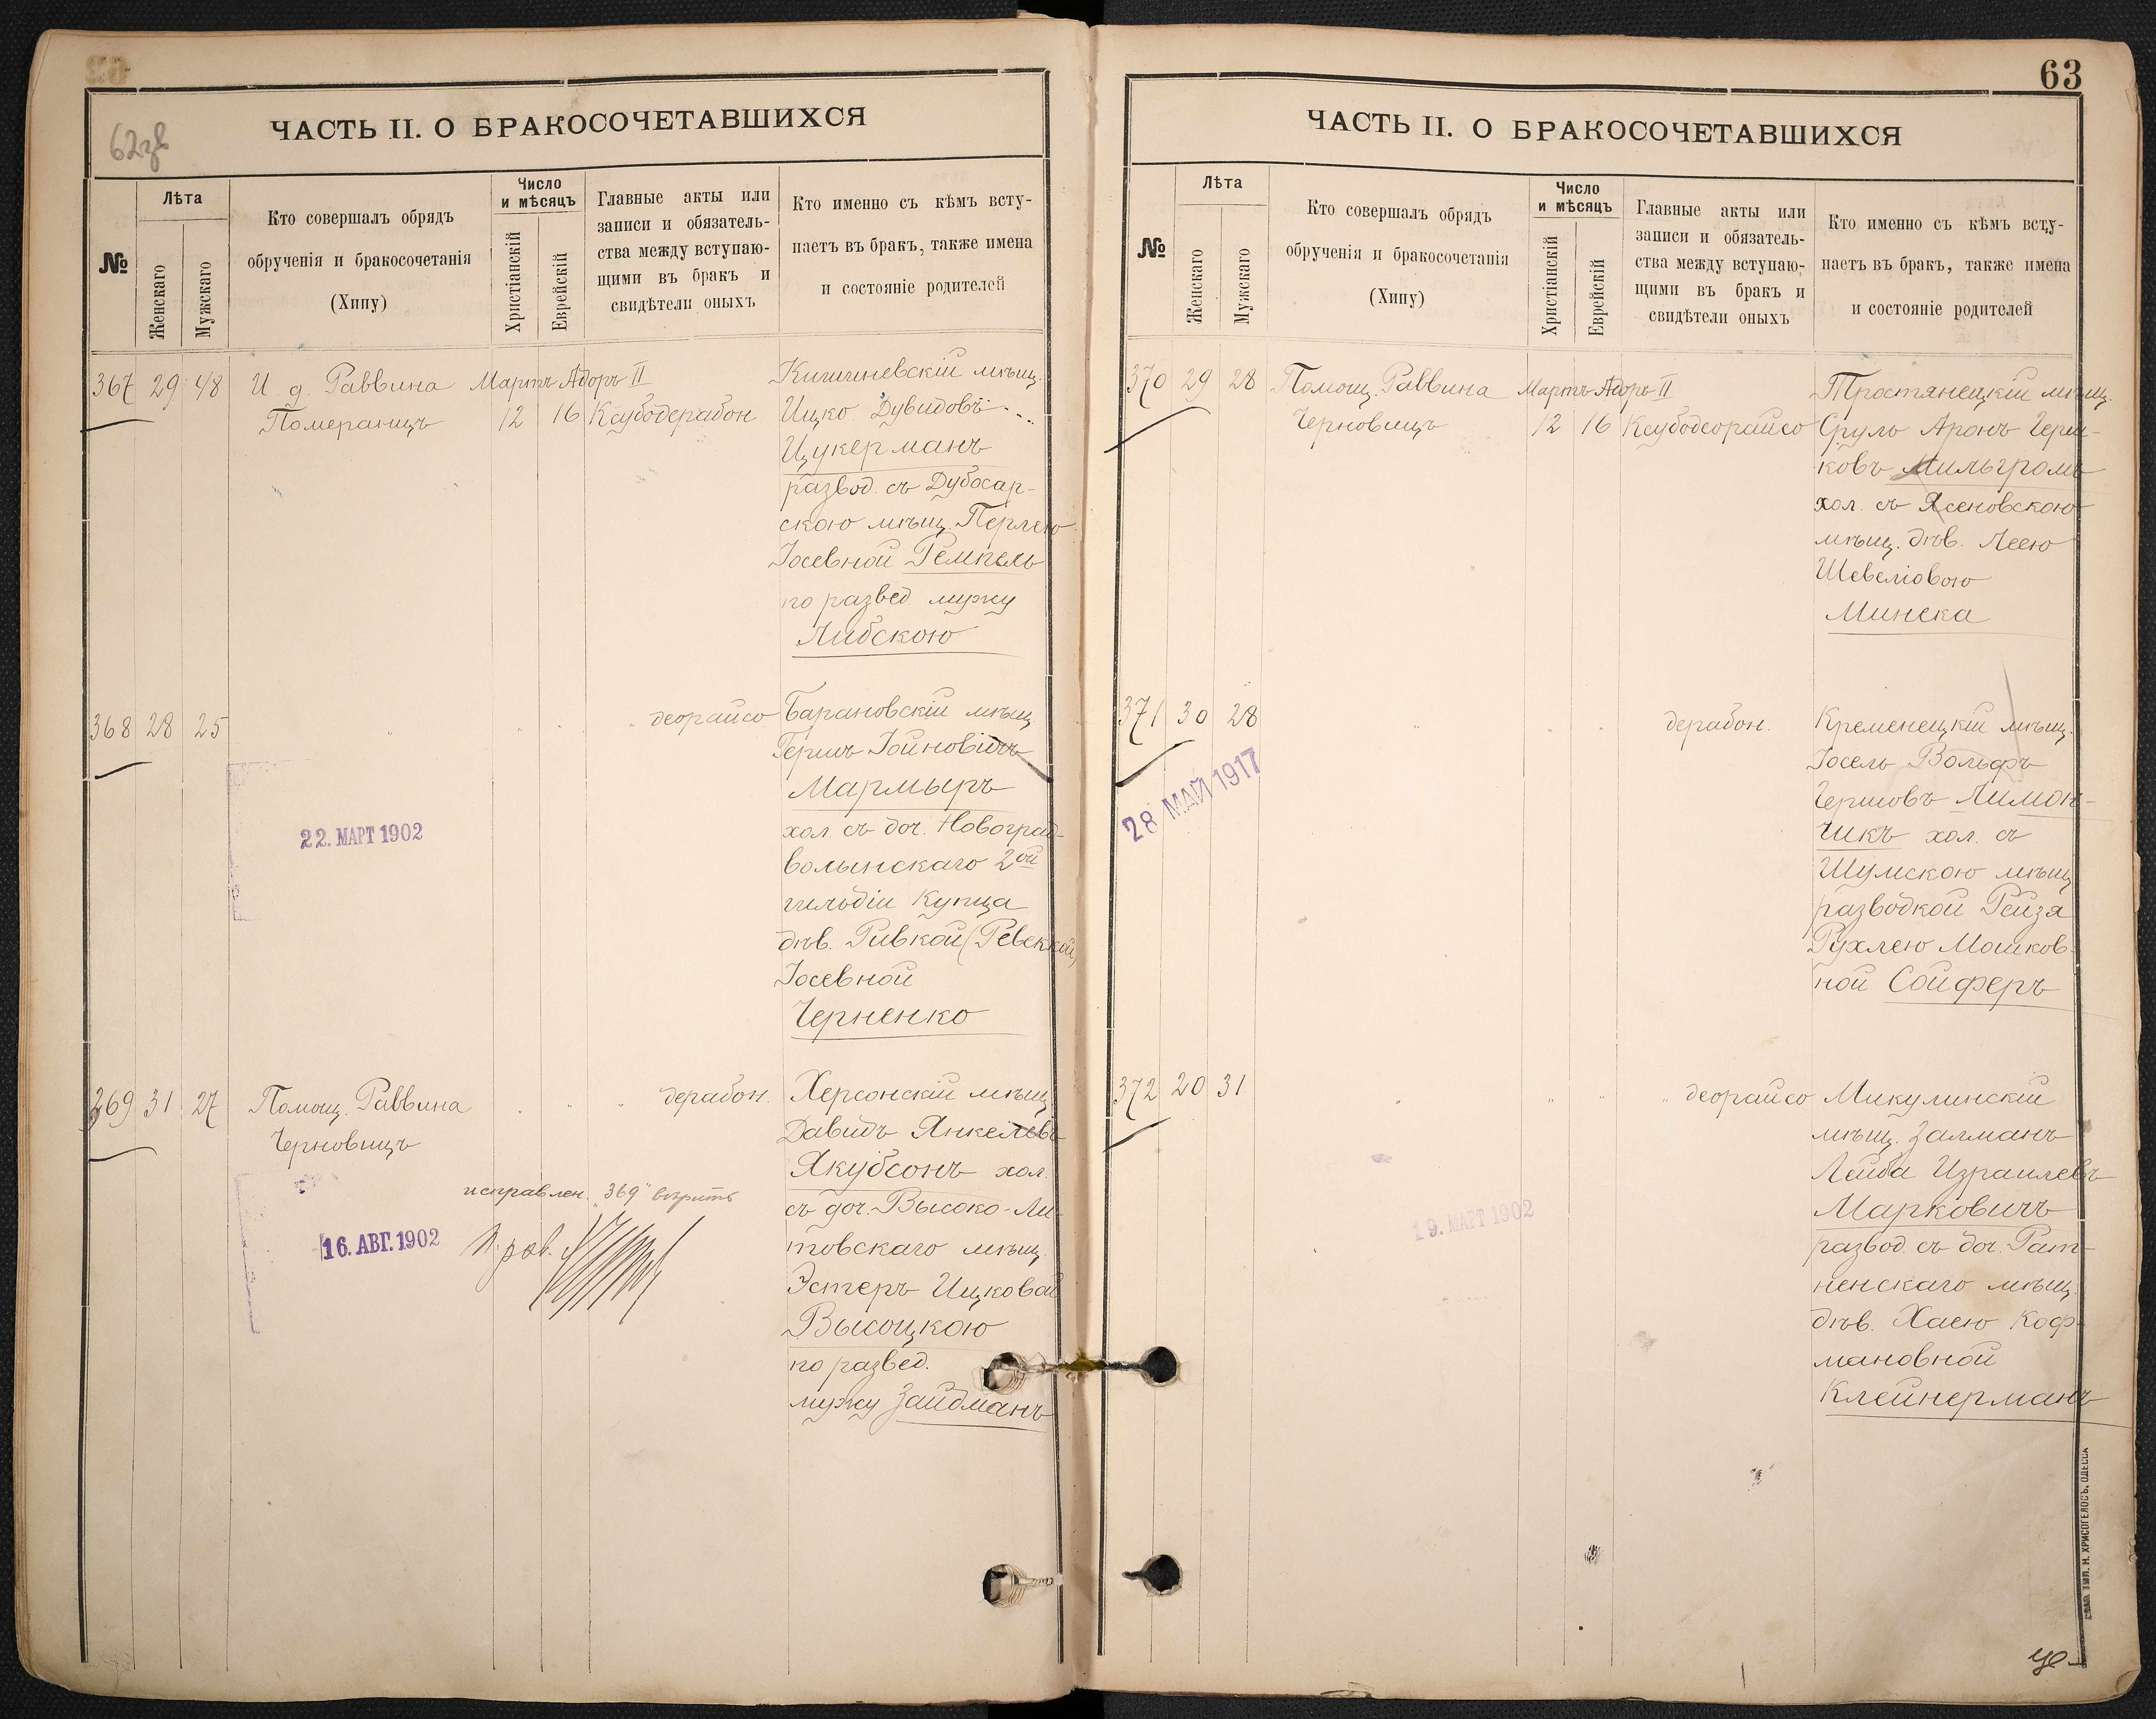 62зв
ЧАСТЬ II. О БРАКОСОЧЕТАВШИХСЯ
№
Лѣта
Женскаго
Мужскаго
Кто совершалъ обрядъ
обрученія и бракосочетанія
(Хипу)
Число
и мѣсяцъ
Христіанскій
Еврейскій
Главные акты или
записи и обязатель-
ства между вступаю-
щими въ бракъ и
свидѣтели оныхъ
Кто именно съ кѣмъ всту-
паетъ въ бракъ, также имена
и состояніе родителей
367 29 48 И д. Раввина Мартъ Адоръ II Кишиневскій мѣщ.
Померанцъ 12 16 Ксубодерабон Ицко Дувидовъ
Цукерманъ
развод. съ Дубосар-
скою мѣщ. Перлею
Іосевной Темпель
по развед. мужу
Либскою
368 28 25 " " " деорайсо Барановскій мѣщ.
Гершъ Іойновичъ
Мармыръ
хол. съ доч. Новоград-
волынскаго 2ой
гильдіи Купца
дѣв. Ривкой (Ревеккой)
Іосевной
Черненко
22. МАРТ 1902
369 31 27 Помощ. Раввина " " " дерабон. Херсонскій мѣщ.
Черновицъ Давидъ Янкелевъ
Якубсонъ хол.
исправлен. "369" вѣрить
съ доч. Высоко-Ли-
товскаго мѣщ.
Эстеръ Ицковой
Высоцкою
по развед.
мужу Зайдманъ
16. АВГ. 1902
П. рав.
63
ЧАСТЬ II. О БРАКОСОЧЕТАВШИХСЯ
№
Лѣта
Женскаго
Мужскаго
Кто совершалъ обрядъ
обрученія и бракосочетанія
(Хипу)
Число
и мѣсяцъ
Христіанскій
Еврейскій
Главные акты или
записи и обязатель-
ства между вступаю-
щими въ бракъ и
свидѣтели оныхъ
Кто именно съ кѣмъ всту-
паетъ въ бракъ, также имена
и состояніе родителей
370 29 28 Помощ. Раввина Мартъ Адоръ II Тростянецкій мѣщ.
Черновицъ 12 16 Ксубодеорайсо Сруль Аронъ Герш-
ковъ Мильгромъ
хол. съ Ясеновскою
мѣщ. дѣв. Леею
Шевеліовою
Минска
371 30 28 " " " дерабон. Кременецкій мѣщ.
Іосель Вольфъ
Гершовъ Лимон-
чикъ хол. съ
Шумскою мѣщ.
разводкой Рейзя
Рухлею Мошков-
ной Сойферъ
28 МАЙ 1917
372 20 31 " " " деорайсо Микулинскій
мѣщ. Залманъ
Лейба Израилевъ
Марковичъ
развод. съ доч. Рат-
ненскаго мѣщ.
дѣв. Хаею Коф-
мановной
Клейнерманъ
19. МАРТ 1902
ТИП. Н. ХРИСОГЕЛОСЪ, ОДЕССА